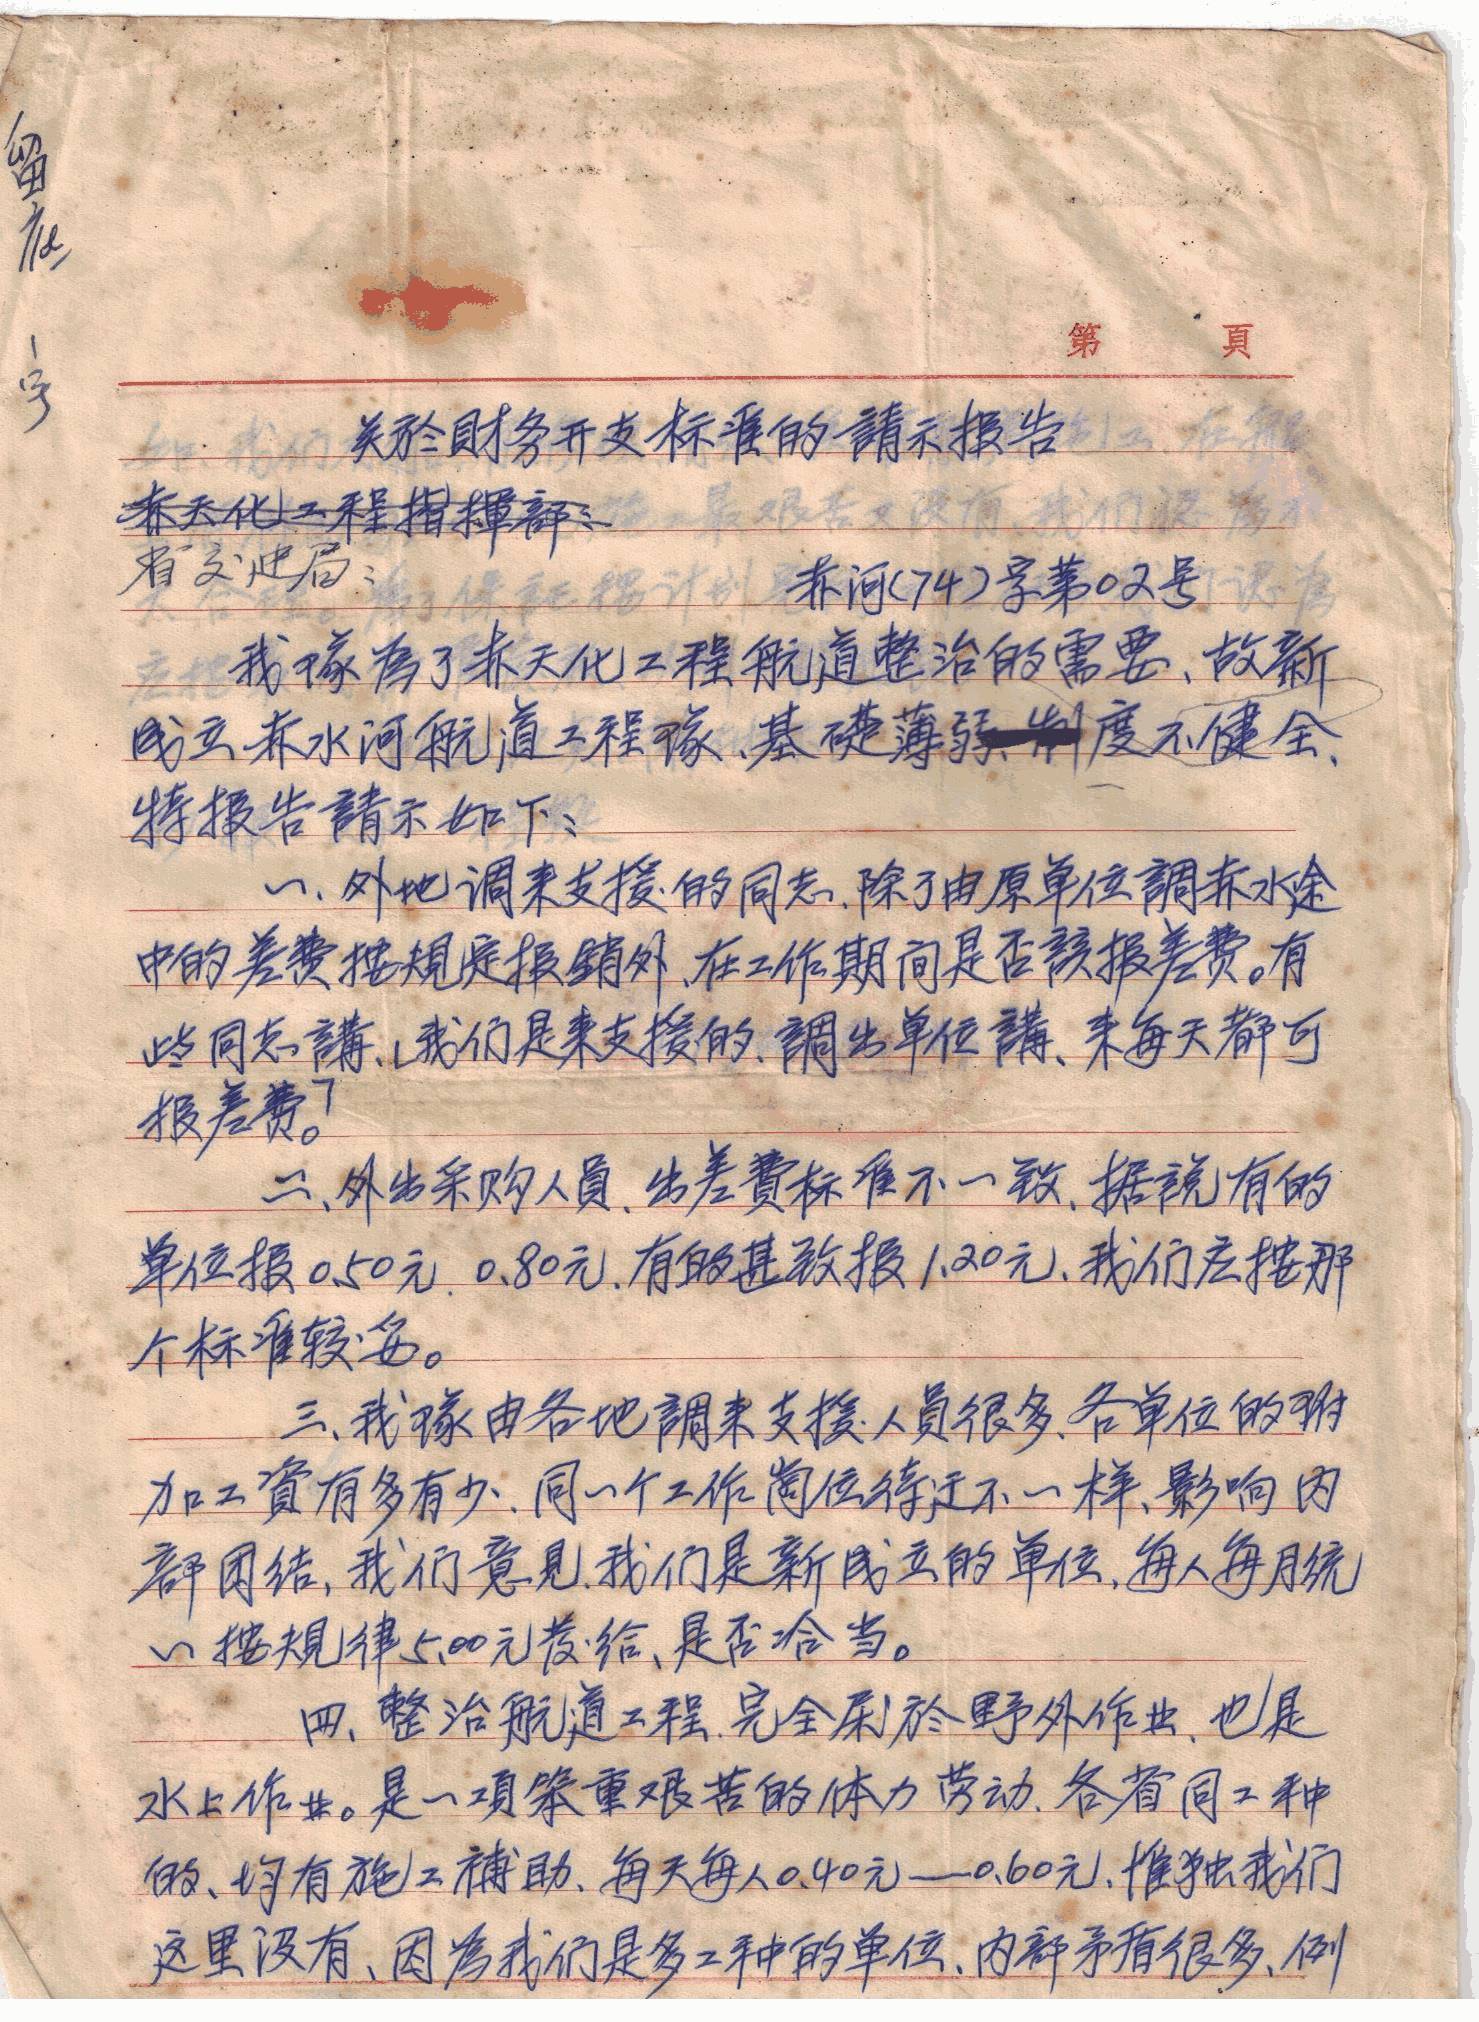 留底
第 頁
关於財务开支标准的請示报告
赤天化工程指揮部：
省交通局：
赤河(74)字第02号
我隊為了赤天化工程航道整治的需要、故新
成立赤水河航道工程隊、基礎薄弱、制度不健全、
特报告請示如下：
一、外地调来支援的同志、除了由原单位調赤水途
中的差费按規定报銷外、在工作期间是否該报差费。有
些同志講、「我们是来支援的、調出单位講、来每天都可
报差费。」
二、外出采购人员、出差費标准不一致、据説有的
单位报0.50元、0.80元、有的甚致报1.20元、我们应按那
个标准较妥。
三、我隊由各地調来支援人員很多、各单位的附
加工資有多有少、同一个工作崗位待迂不一样、影响内
部团结、我们意见、我们是新成立的单位、每人每月统
一按規律5.00元发给、是否洽当。
四、整治航道工程、完全属於野外作业、也是
水上作业。是一項笨重艰苦的体力劳动、各省同工种
的、均有施工補助、每天每人0.40元—0.60元、惟独我们
这里没有、因為我们是多工种的单位、内部矛盾很多、例